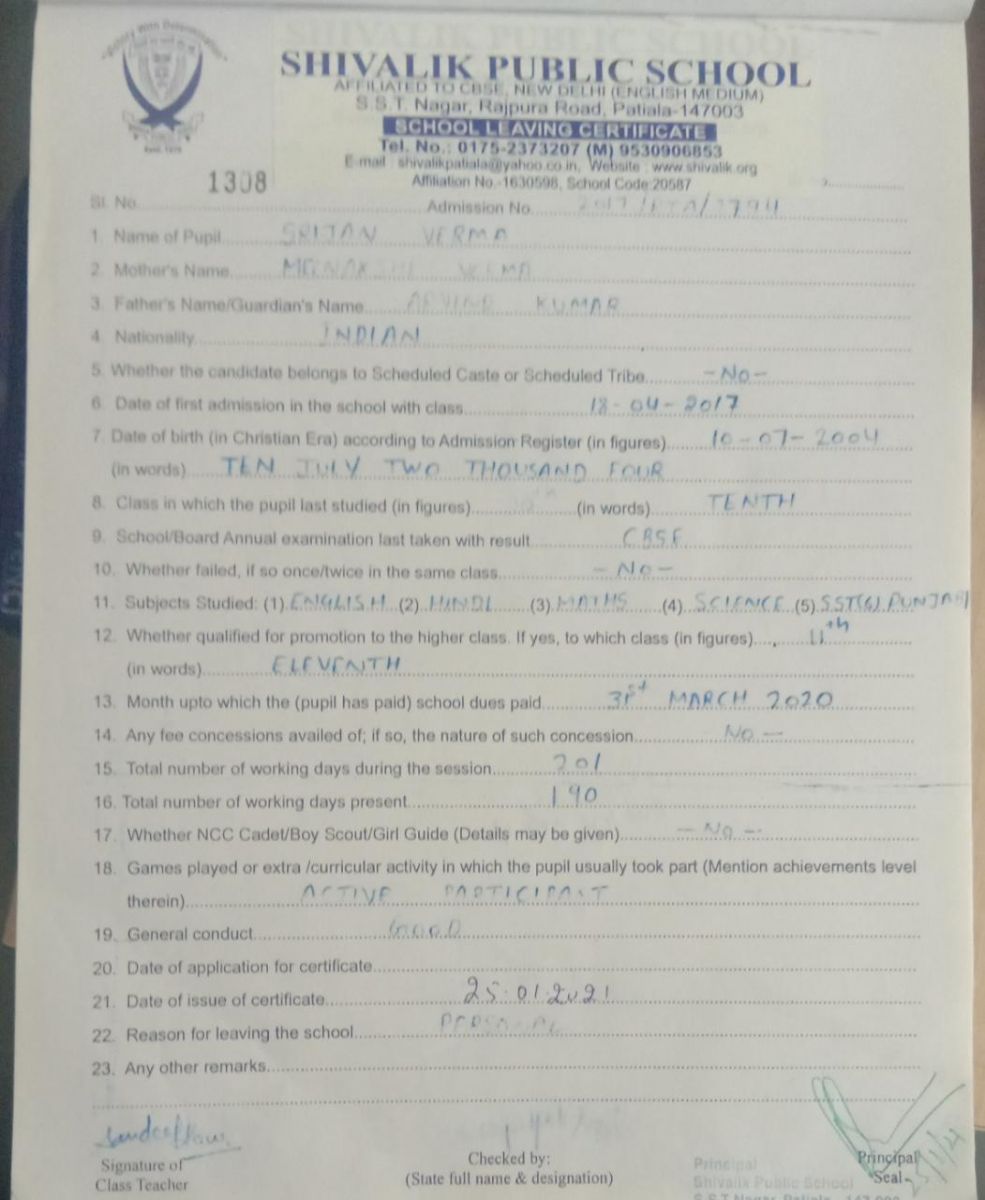 SHIVALIK PUBLIC SCHOOL
AFFILIATED TO CBSE, NEW DELHI (ENGLISH MEDIUM)
S.S.T. Nagar, Rajpura Road, Patiala-147003
SCHOOL LEAVING CERTIFICATE
Tel. No.: 0175-2373207 (M) 9530906853
E-mail : shivalikpatiala@yahoo.co.in, Website : www.shivalik.org
Affiliation No.-1630598, School Code 20587
1308
Sl. No. Admission No.
1. Name of Pupil SRIJAN VERMA
2. Mother's Name
3. Father's Name/Guardian's Name KUMAR
4. Nationality INDIAN
5. Whether the candidate belongs to Scheduled Caste or Scheduled Tribe - No -
6. Date of first admission in the school with class 18-04-2017
7. Date of birth (in Christian Era) according to Admission Register (in figures) 10-07-2004
(in words) TEN JULY TWO THOUSAND FOUR
8. Class in which the pupil last studied (in figures) (in words) TENTH
9. School/Board Annual examination last taken with result CBSE
10. Whether failed, if so once/twice in the same class - No -
11. Subjects Studied: (1) ENGLISH (2) HINDI (3) MATHS (4) SCIENCE (5) SST (6) PUNJABI
12. Whether qualified for promotion to the higher class. If yes, to which class (in figures) 11th
(in words) ELEVENTH
13. Month upto which the (pupil has paid) school dues paid 31st MARCH 2020
14. Any fee concessions availed of; if so, the nature of such concession No -
15. Total number of working days during the session 201
16. Total number of working days present 190
17. Whether NCC Cadet/Boy Scout/Girl Guide (Details may be given) - No -
18. Games played or extra /curricular activity in which the pupil usually took part (Mention achievements level
therein) ACTIVE PARTICIPANT
19. General conduct GOOD
20. Date of application for certificate
21. Date of issue of certificate 25.01.2021
22. Reason for leaving the school PERSONAL
23. Any other remarks
Signature of
Class Teacher
Checked by:
(State full name & designation)
Principal
Seal
Principal
Shivalik Public School